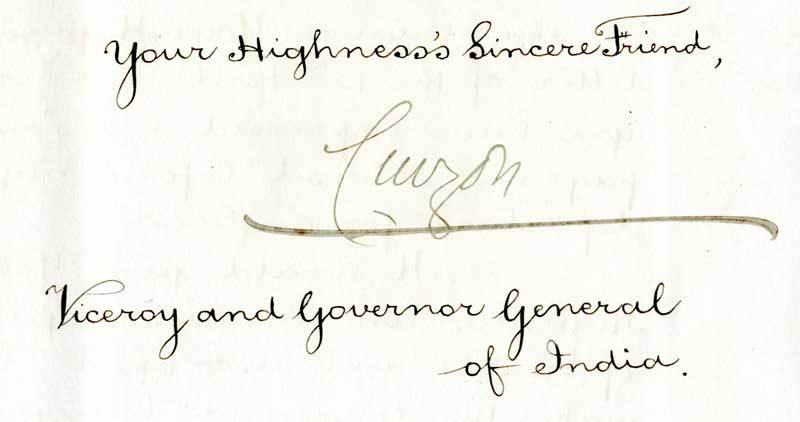 Your Highness's Sincere Friend,
Curzon
Viceroy and Governor General
of India.